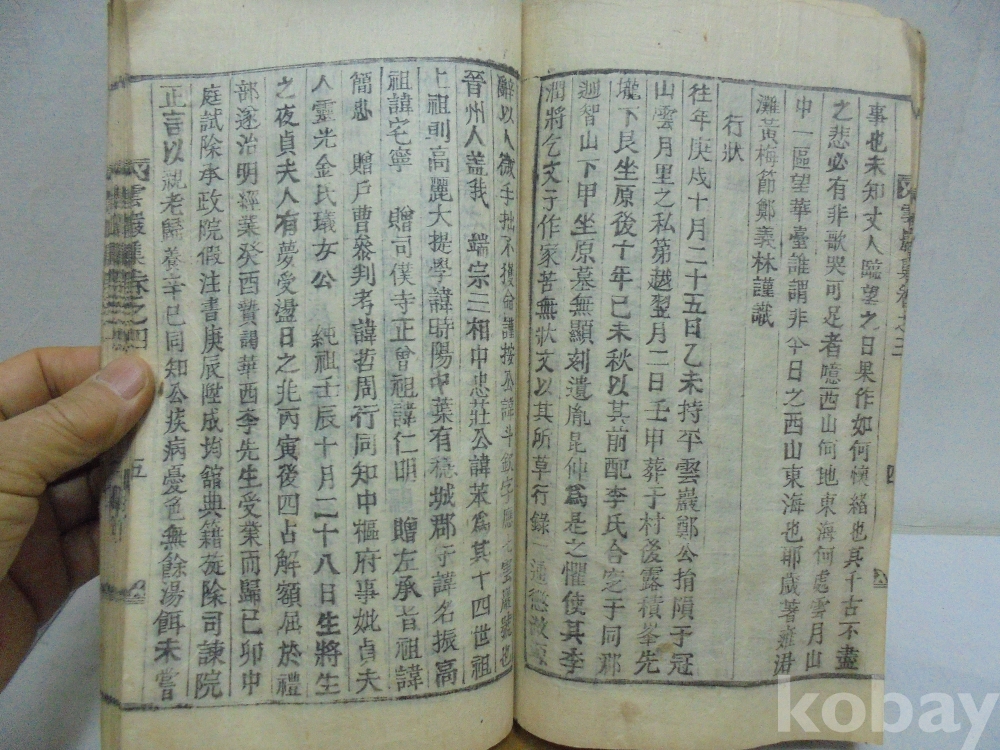 事也未知丈人臨望之日果作如何懷緖也其千古不盡
之悲必有非歌哭可足者噫西山何地東海何處雪月山
中一區望華臺誰謂非今日之西山東海也耶歲著雍涒
灘黃梅節鄭義林謹識
行狀
往年庚戌十月二十五日乙未持平雲巖鄭公捐隕于冠
山雲月里之私第越翌月二日壬申葬于村後露積峯先
壠下艮坐原後十年己未秋以其前配李氏合窆于同郡
迴智山下甲坐原墓無顯刻遺胤昆仲爲是之懼使其季
潤將乞文于作家苦無狀文以其所草行錄一通
辭以人微手拙不獲命謹按公諱斗欽字
晉州人盖我 端宗三相中忠莊公諱苯爲其十四世祖
上祖則高麗大提學諱時陽中葉有穩城郡守諱名振高
祖諱宅寧 贈司僕寺正曾祖諱仁明 贈左承旨祖諱
簡 贈戶曹參判考諱哲周行同知中樞府事妣貞夫
人靈光金氏璊女公 純祖壬辰十月二十八日生將生
之夜貞夫人有夢受盪日之兆丙寅後四占解額屈於禮
部遂治明經業癸酉贄謁華西李先生受業而歸己卯中
庭試除承政院假注書庚辰陞成均館典籍旋除司諫院
正言以親老歸養辛巳同知公疾病憂色無餘湯餌未嘗
雲巖集卷之三
四
雲巖集卷之四
五
kobay